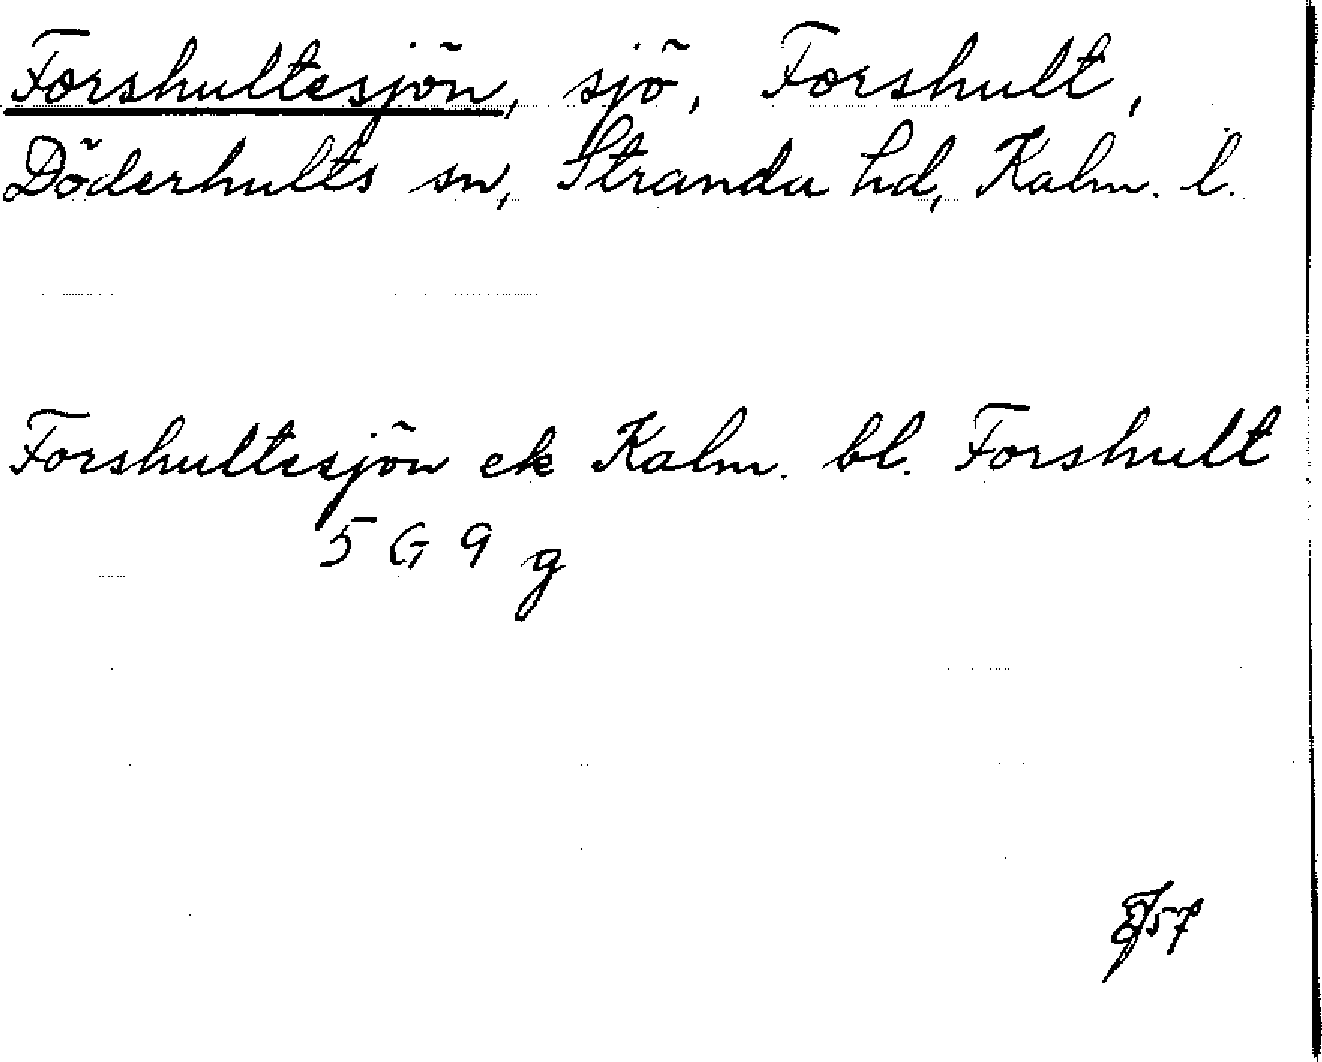 Forshultesjön, sjö, Forshult,
Döderhults sn, Stranda hd, Kalm. l.
Forshultesjön ek Kalm. bl. Forshult
5 G 9 g
57